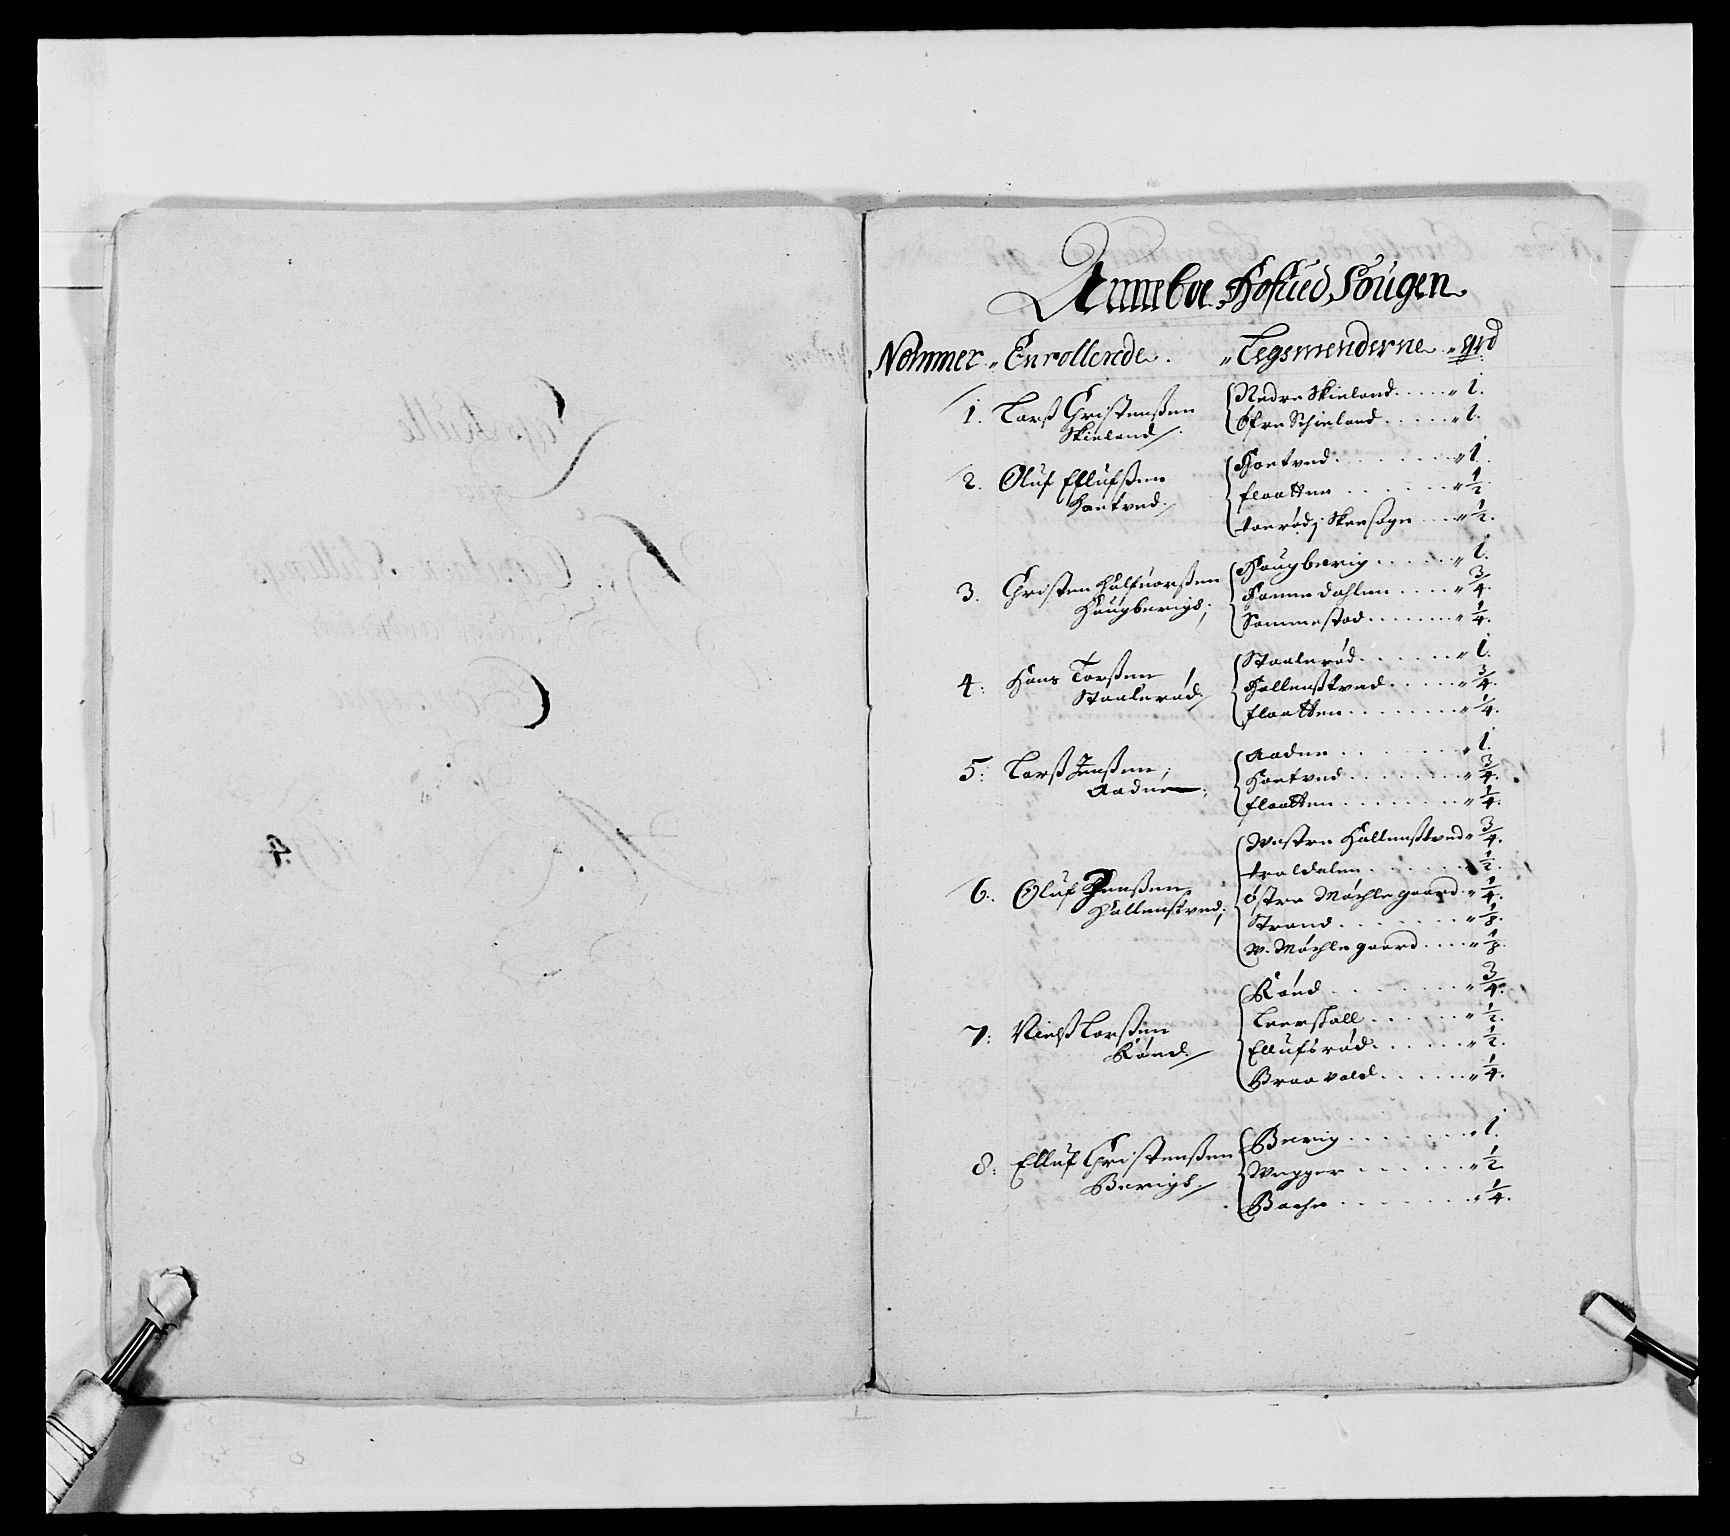 Anneboe Hofued Sougen
Nommer Enrollerede Legsmenderne grd
1. Larß Christenßen Skieland
Nedre Skieland 1.
Øfre Schieland 1.
2. Oluf Ellufßen Hartved
Hartved 1.
flaatten 1/2
1/2.
3. Christen Halfuorßen Haugberigs
Haugberig 1.
Hannedahlen 3/4.
Sommestad 1/4.
4: Hans Torßen Staalerød
Staalerød 1.
Hallenstved 3/4.
flaatten 1/4.
5: Larß Jenßen Aadne
Aadne 1.
Hartved 3/4.
flaatten 1/4.
6. Oluf Jenßen Hallenstved
Westre Hallenstved 3/4.
troldalen 1/2.
østre Møchlegaard 1/4.
Strand 1/8.
W. Møchlegaard 1/8.
7: Nielß Larßen Rønd
Rønd 3/4.
Leerskall 1/2.
Ellufsrød 1/2.
Braavold 1/4.
8: Elluf Christenßen Berigs
Berig 1.
Wegger 1/2
Bache 1/4.
4